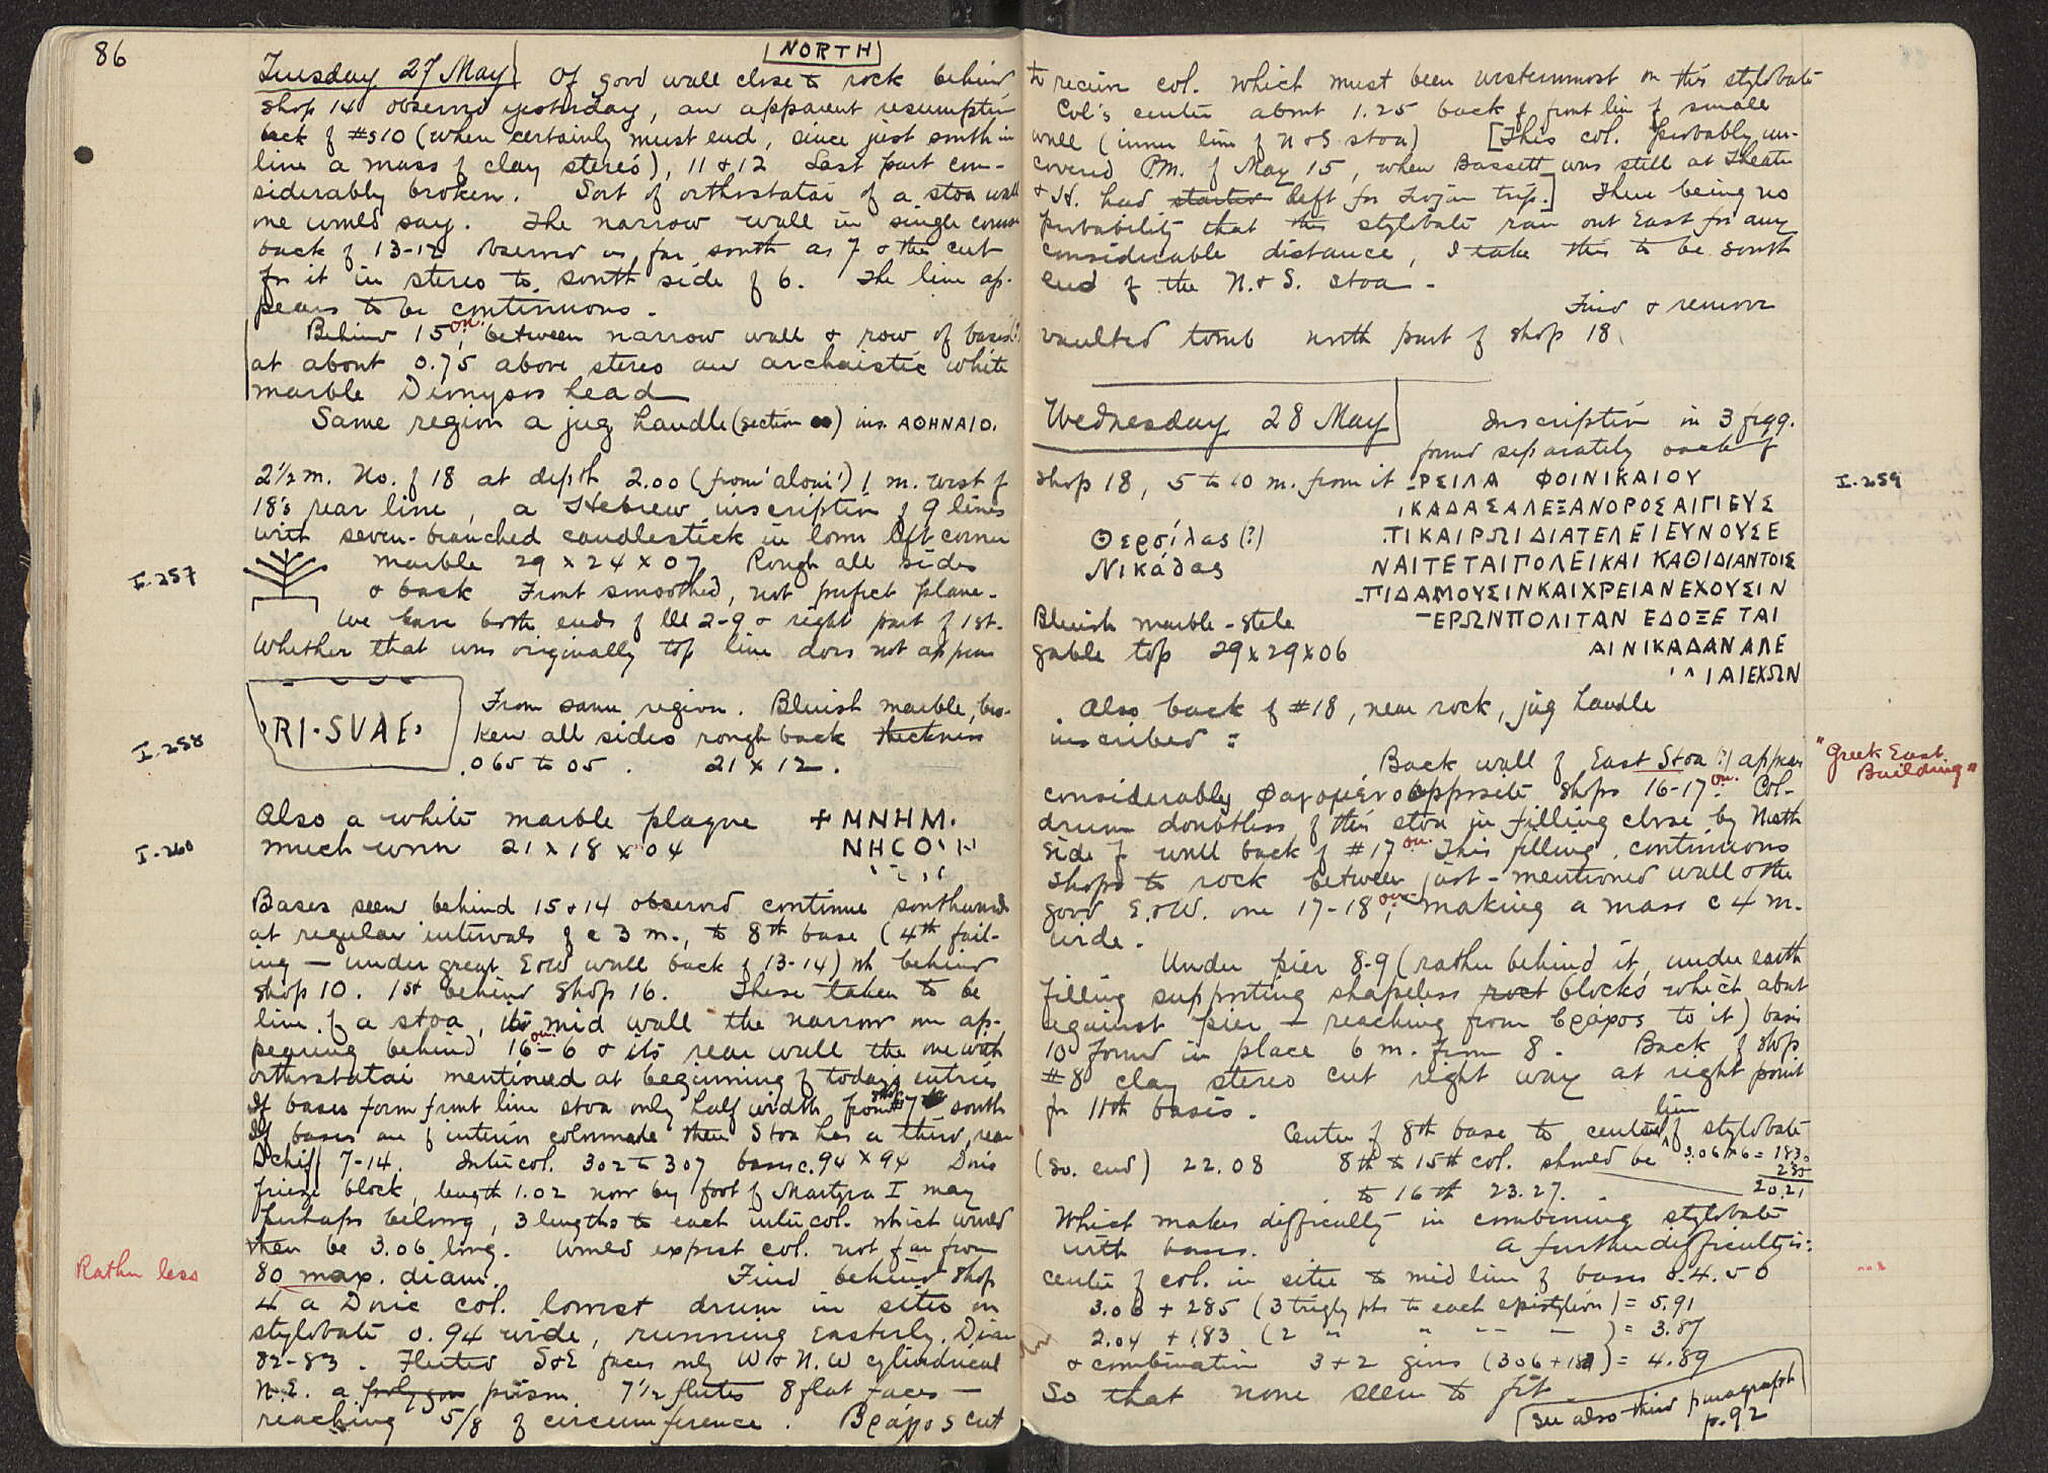 86
NORTH
Tuesday 27 May Of good wall close to rock behind
shop 14 observed yesterday, an apparent resumption
back of #s10 (when certainly must end, since just south in
line a mass of clay stereo), 11 & 12 Last part con-
siderably broken. Sort of orthostatai of a stoa wall
one would say. The narrow wall in single course
back of 13-12 observed as far south as 7 & the cut
for it in stereo to south side of 6. The line ap-
pears to be continuous.
Behind 15 on. between narrow wall & row of bases
at about 0.75 above stereo an archaistic white
marble Dionysos head
Same region a jug handle (section ∞) ins. ΑΘΗΝΑΙΟ.
2½ m. No. of 18 at depth 2.00 (from 'aloni') 1 m. west of
18's rear line, a Hebrew inscription of 9 lines
with seven-branched candlestick in lower left corner
I-257
marble 29 x 24 x 07 Rough all sides
& back Front smoothed, not perfect plane.
We have both ends of ll 2-9 & right part of 1st.
Whether that was originally top line does not appear
RI·SVAE
From same region. Bluish marble, bro-
ken all sides rough back thickness
.065 to 05. 21 x 12.
I-258
Also a white marble plaque + MNHM.
much worn 21 x 18 x 04 NHCO
I-260
Bases seen behind 15 & 14 observed continue southward
at regular intervals of c 3 m., to 8th base (4th fail-
ing — under great E&W wall back of 13-14) behind
shop 10. 1st behind shop 16. These taken to be
line of a stoa, its mid wall the narrow one ap-
pearing behind 16 on - 6 & its rear wall the one with
orthostatai mentioned at beginning of today's entries
If bases form front line stoa only half width from 7 south
If bases are of interior colonnade then Stoa has a third, rear
7-14. Intercol. 302 to 307 bases c. 94 x 94 Doric
frieze block, length 1.02 now by foot of Martyra I may
perhaps belong, 3 lengths to each intercol. which would
then be 3.06 long. Would expect col. not far from
80 max. diam. Find behind shop
Rather less
4 a Doric col. lowest drum in situ on
stylobate 0.94 wide, running Easterly. Diam
82-83. Fluted S&E faces only W & N.W cylindrical
N.E. a polygon prism. 7½ flutes 8 flat faces —
reaching 5/8 of circumference. Βράχος cut
to receive col. which must been westernmost on this stylobate
Col's center about 1.25 back of front line of small
wall (inner line of N & S stoa) [This col. probably un-
covered P.M. of May 15, when Bassett was still at Theatre
& H. had started left for Trojan trip.] There being no
probability that this stylobate ran out East for any
considerable distance, I take this to be south
end of the N. & S. stoa.
Find & remove
vaulted tomb north part of shop 18
Wednesday 28 May
Inscription in 3 frgg.
found separately back of
shop 18, 5 to 10 m. from it
I-259
ΡΣΙΛΑ ΦΟΙΝΙΚΑΙΟΥ
ΙΚΑΔΑΣΑΛΕΞΑΝΟΡΟΣΑΙΓΙΕΥΣ
ΤΙΚΑΙΡΩΙΔΙΑΤΕΛΕΙΕΥΝΟΥΣΕ
ΝΑΙΤΕΤΑΙΠΟΛΕΙΚΑΙ ΚΑΘΙΔΙΑΝΤΟΙΣ
ΠΙΔΑΜΟΥΣΙΝΚΑΙΧΡΕΙΑΝΕΧΟΥΣΙΝ
ΕΡΩΝΠΟΛΙΤΑΝ ΕΔΟΞΕ ΤΑΙ
ΑΙΝΙΚΑΔΑΝΑΛΕ
ΙΑΙΕΧΩΝ
Θερσίλας (?)
Νικάδας
Bluish marble - stele
gable top 29 x 29 x 06
Also back of #18, near rock, jug handle
inscribed =
Back wall of East Stoa (?) appears
"Greek East
Building"
considerably opposite shops 16-17 on. Col-
drum doubtless of this stoa in filling close by North
side of wall back of #17 on. This filling, continuous
shops to rock between just-mentioned wall & the
good E&W. one 17-18 on, making a mass c 4 m.
wide.
Under pier 8-9 (rather behind it, under earth
filling supporting shapeless rock blocks which abut
against pier — reaching from βράχος to it) basis
10 found in place 6 m. from 8. Back of shop
#8 clay stereo cut right way at right point
for 11th basis.
Center of 8th base to center line of stylobate
(So. end) 22.08 8th to 15th col. should be 3.06 x 6 = 1830
285
20.21
to 16th 23.27.
Which makes difficulty in combining stylobate
with bases. A further difficulty is:
center of col. in situ to mid line of bases is 4.50
3.06 + 285 (3 triglyphs to each epistylion) = 5.91
2.04 + 183 (2 " " " — ) = 3.87
& combination 3 + 2 gives (306 + 183) = 4.89
So that none seem to fit
See also third paragraph
p. 92